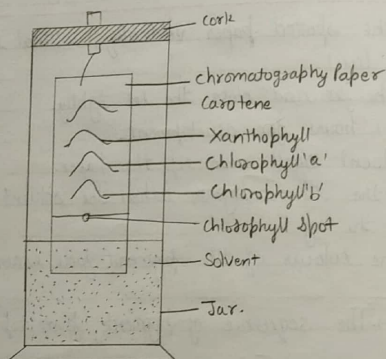 Cork
Chromatography Paper
Carotene
Xanthophyll
Chlorophyll 'a'
Chlorophyll 'b'
Chlorophyll Spot
Solvent
Jar.